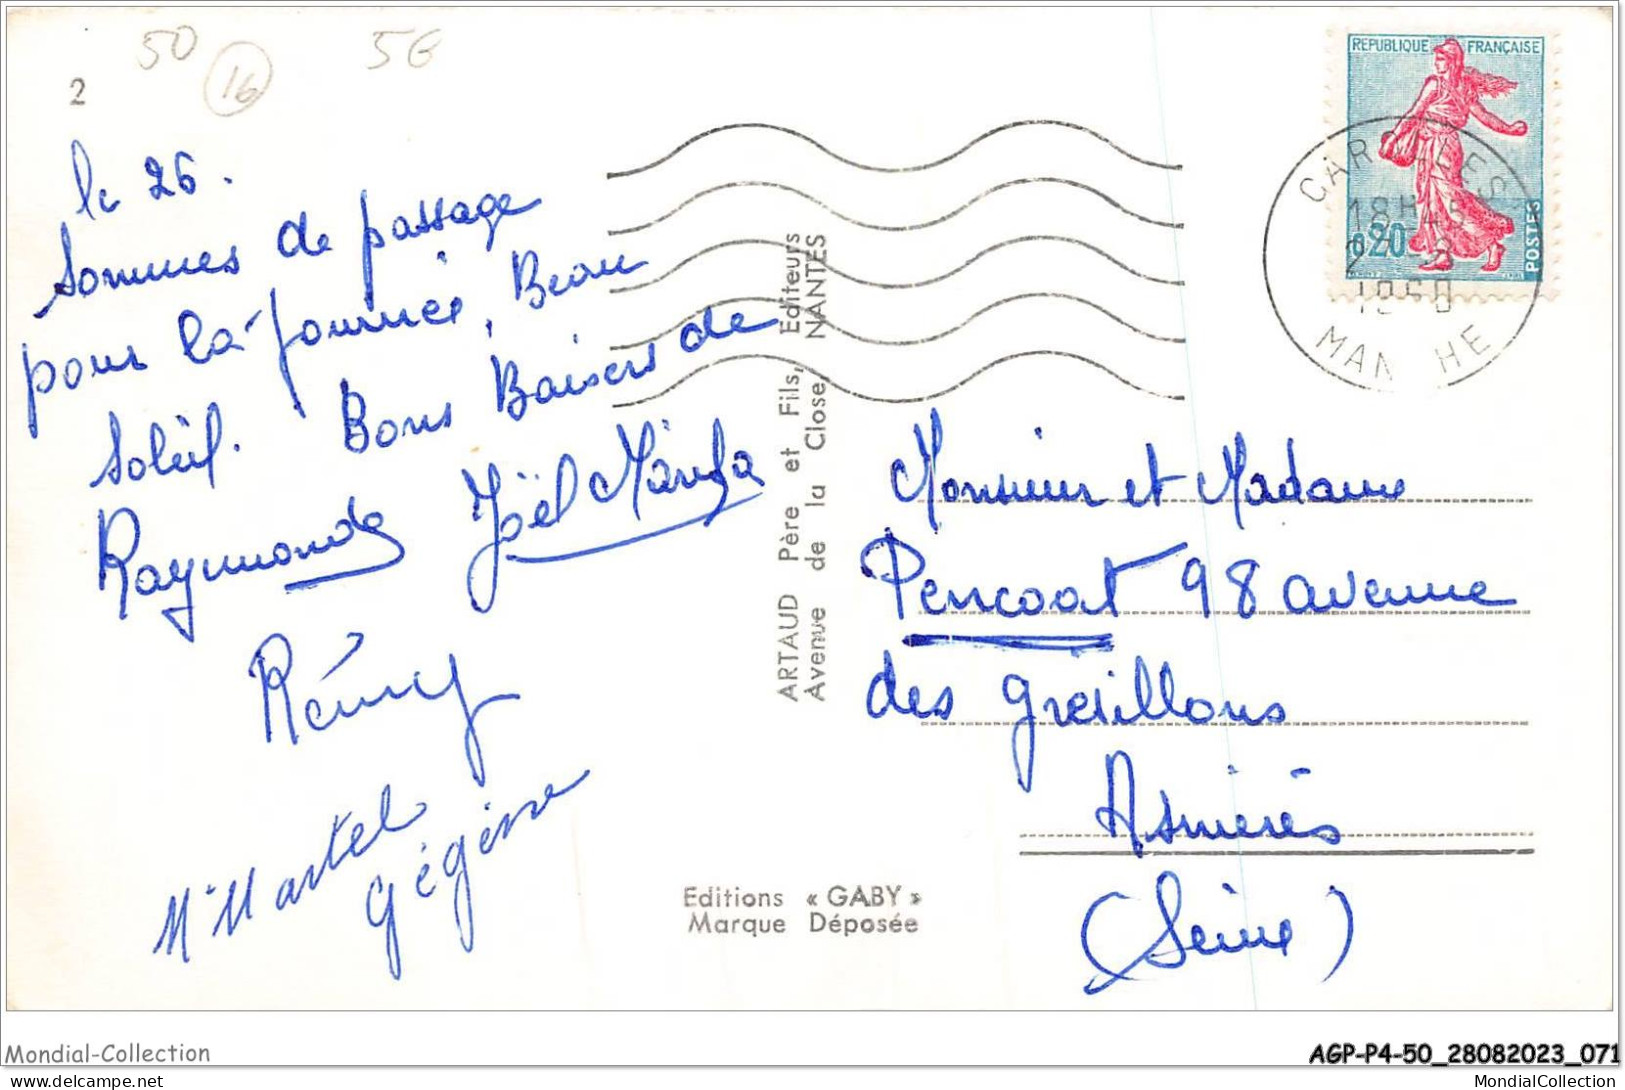 50
16
5G
2
le 26.
Sommes de passage
pour la journée, Beau
soleil. Bons Baisers de
Raymonde Joël
Rémy
Mr Martel
gégène
ARTAUD Père et Fils, Editeurs
Avenue de la Close, NANTES
Editions « GABY »
Marque Déposée
REPUBLIQUE FRANÇAISE
0,20
POSTES
18H
MANCHE
Monsieur et Madame
Pencoat 98 avenue
des grésillons
Asnières
(Seine)
Mondial-Collection
AGP-P4-50_28082023_071
delcampe.net
MondialCollection